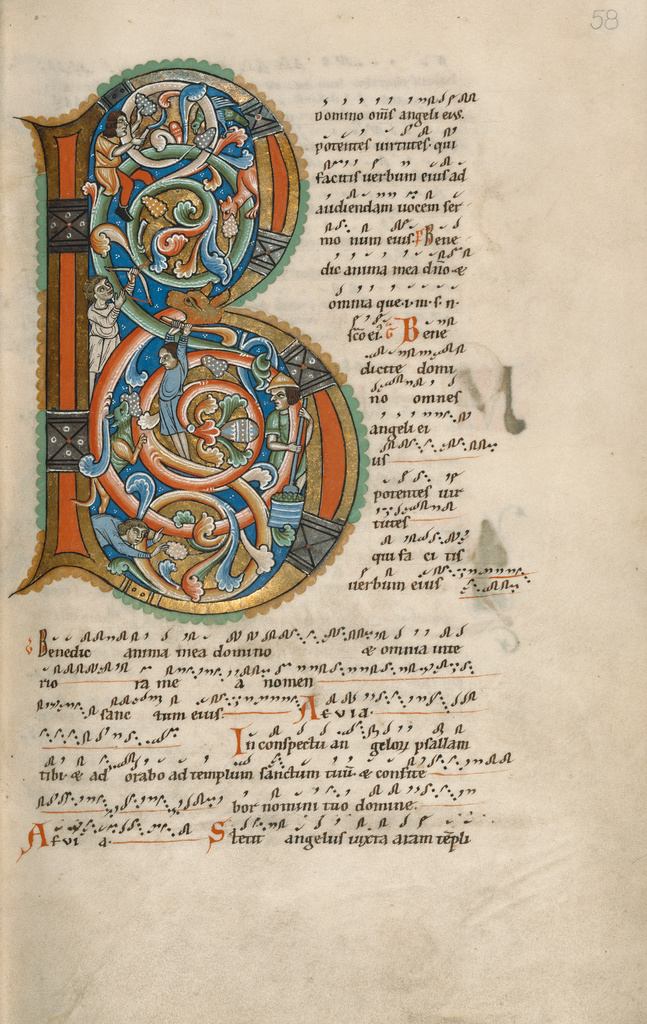 58
B
Domino om̄s angeli eius.
potentes uirtutes. qui
facitis uerbum eius ad
audiendam uocem ser
mo num eius. Bene
dic anima mea dño &
omnia que. i. m. s. n.
sc̄o ei. G Bene
dicite domi
no omnes
angeli ei
us
potentes uir
tutes
qui fa ci tis
uerbum eius
Benedic anima mea domino & omnia inte
rio ra me a nomen
sanc tum eius. Aevia.
In conspectu an gelorum psallam
tibi & ad orabo ad templum sanctum tuū & confite
bor nomini tuo domine.
Aevia. Stetit angelus iuxta aram tēpli